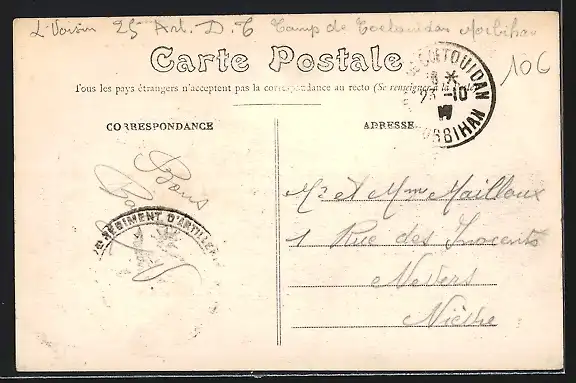 L. Voisin 25e Art. D. T Camp de Coetquidan Morbihan
Carte Postale
106
Tous les pays étrangers n'acceptent pas la correspondance au recto (Se renseigner à la Poste)
COETQUIDAN
* 23 -10
MORBIHAN
CORRESPONDANCE
ADRESSE
Bons
RÉGIMENT D'ARTILLERIE
Mr et Mme Mailloux
1 Rue des Inocents
Nevers
Nièvre